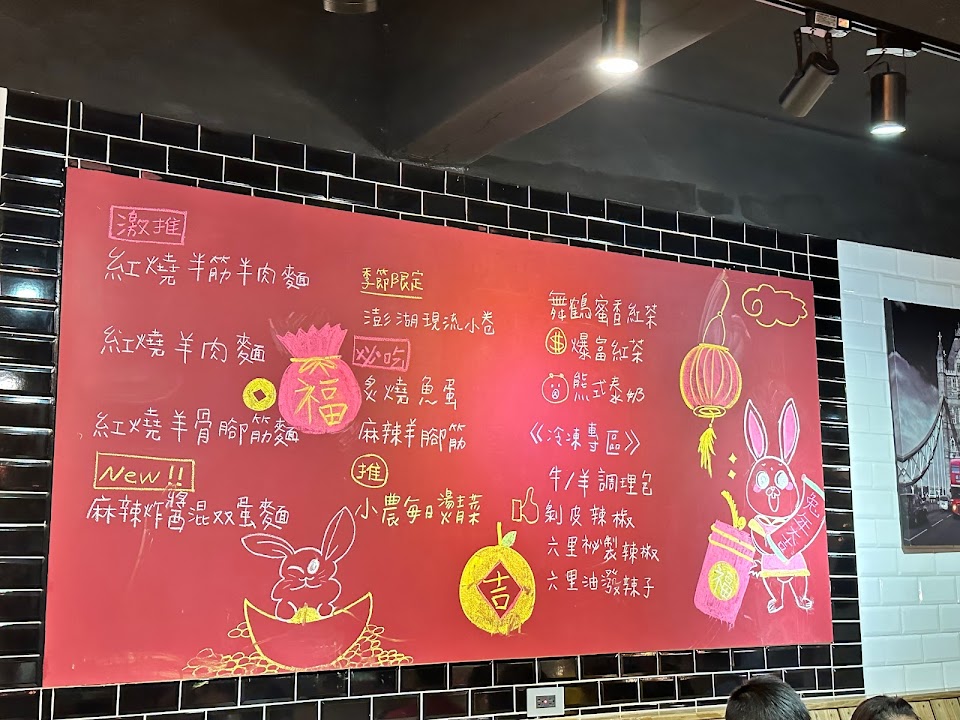 激推
紅燒半筋羊肉麵
紅燒羊肉麵
紅燒羊骨腳筋麵
New!!
麻辣炸醬混双蛋麵
福
季節限定
澎湖現流小卷
必吃
炙燒魚蛋
麻辣羊腳筋
推
小農每日燙青菜
吉
舞鶴蜜香紅茶
$爆富紅茶
熊式泰奶
《冷凍專區》
牛/羊調理包
剝皮辣椒
六里祕製辣椒
六里油潑辣子
福
兔年大吉